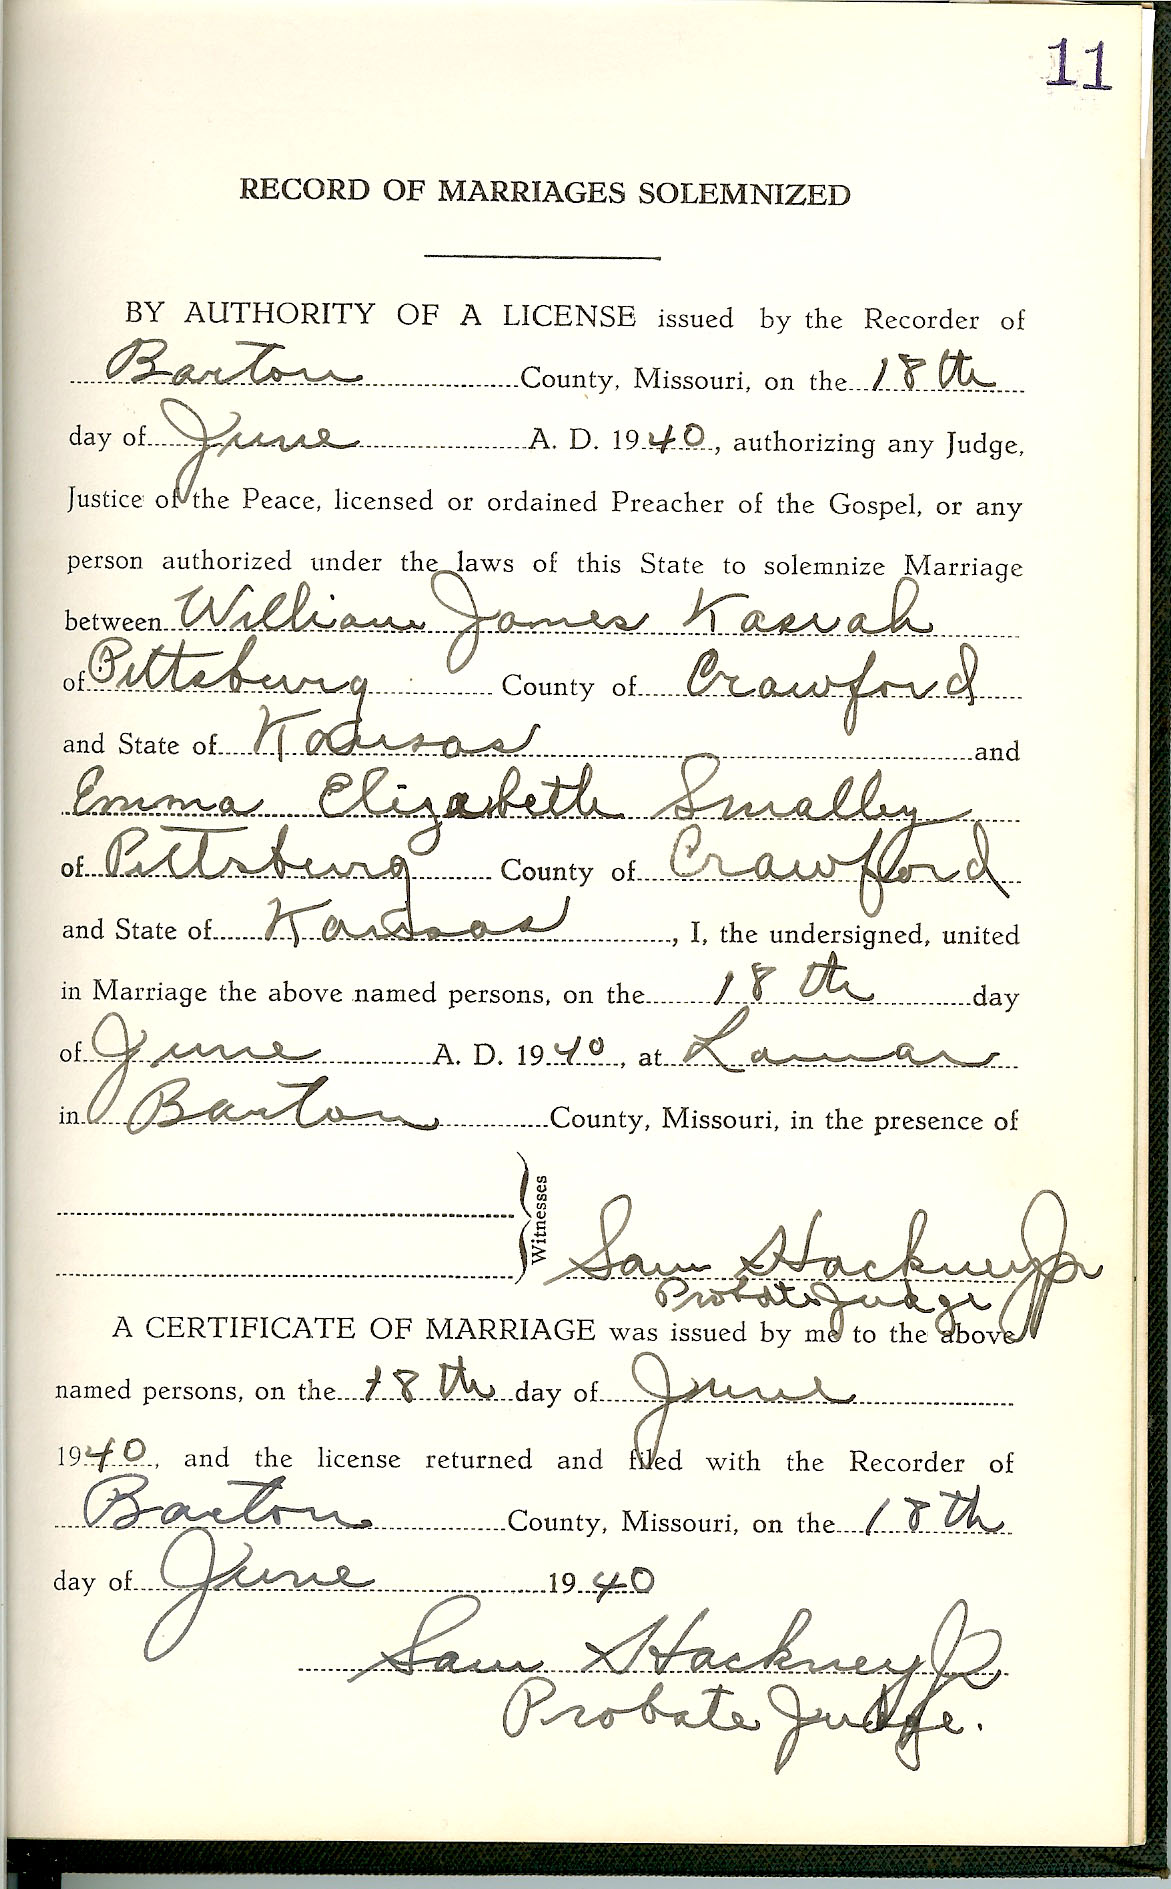 11
RECORD OF MARRIAGES SOLEMNIZED
BY AUTHORITY OF A LICENSE issued by the Recorder of
Barton County, Missouri, on the 18th
day of June A. D. 1940, authorizing any Judge,
Justice of the Peace, licensed or ordained Preacher of the Gospel, or any
person authorized under the laws of this State to solemnize Marriage
between William James
of Pittsburg County of Crawford
and State of Kansas and
Emma Elizabeth Smalley
of Pittsburg County of Crawford
and State of Kansas, I, the undersigned, united
in Marriage the above named persons, on the 18th day
of June A. D. 1940, at Lamar
in Barton County, Missouri, in the presence of
Witnesses
Sam Hackney Jr
Probate Judge
A CERTIFICATE OF MARRIAGE was issued by me to the above
named persons, on the 18th day of June
1940, and the license returned and filed with the Recorder of
Barton County, Missouri, on the 18th
day of June 1940
Sam Hackney Jr
Probate Judge.